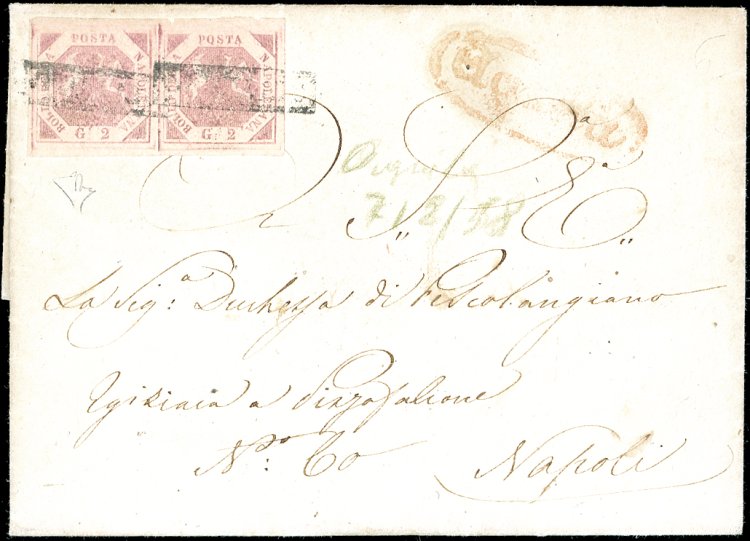 POSTA NAPOLETANA BOLLO G. 2
POSTA NAPOLETANA BOLLO G. 2
7/2/58
A S. E.
La Sig.a Duchessa di Pescolangiano
a Pizzofalcone
N.o 60
Napoli